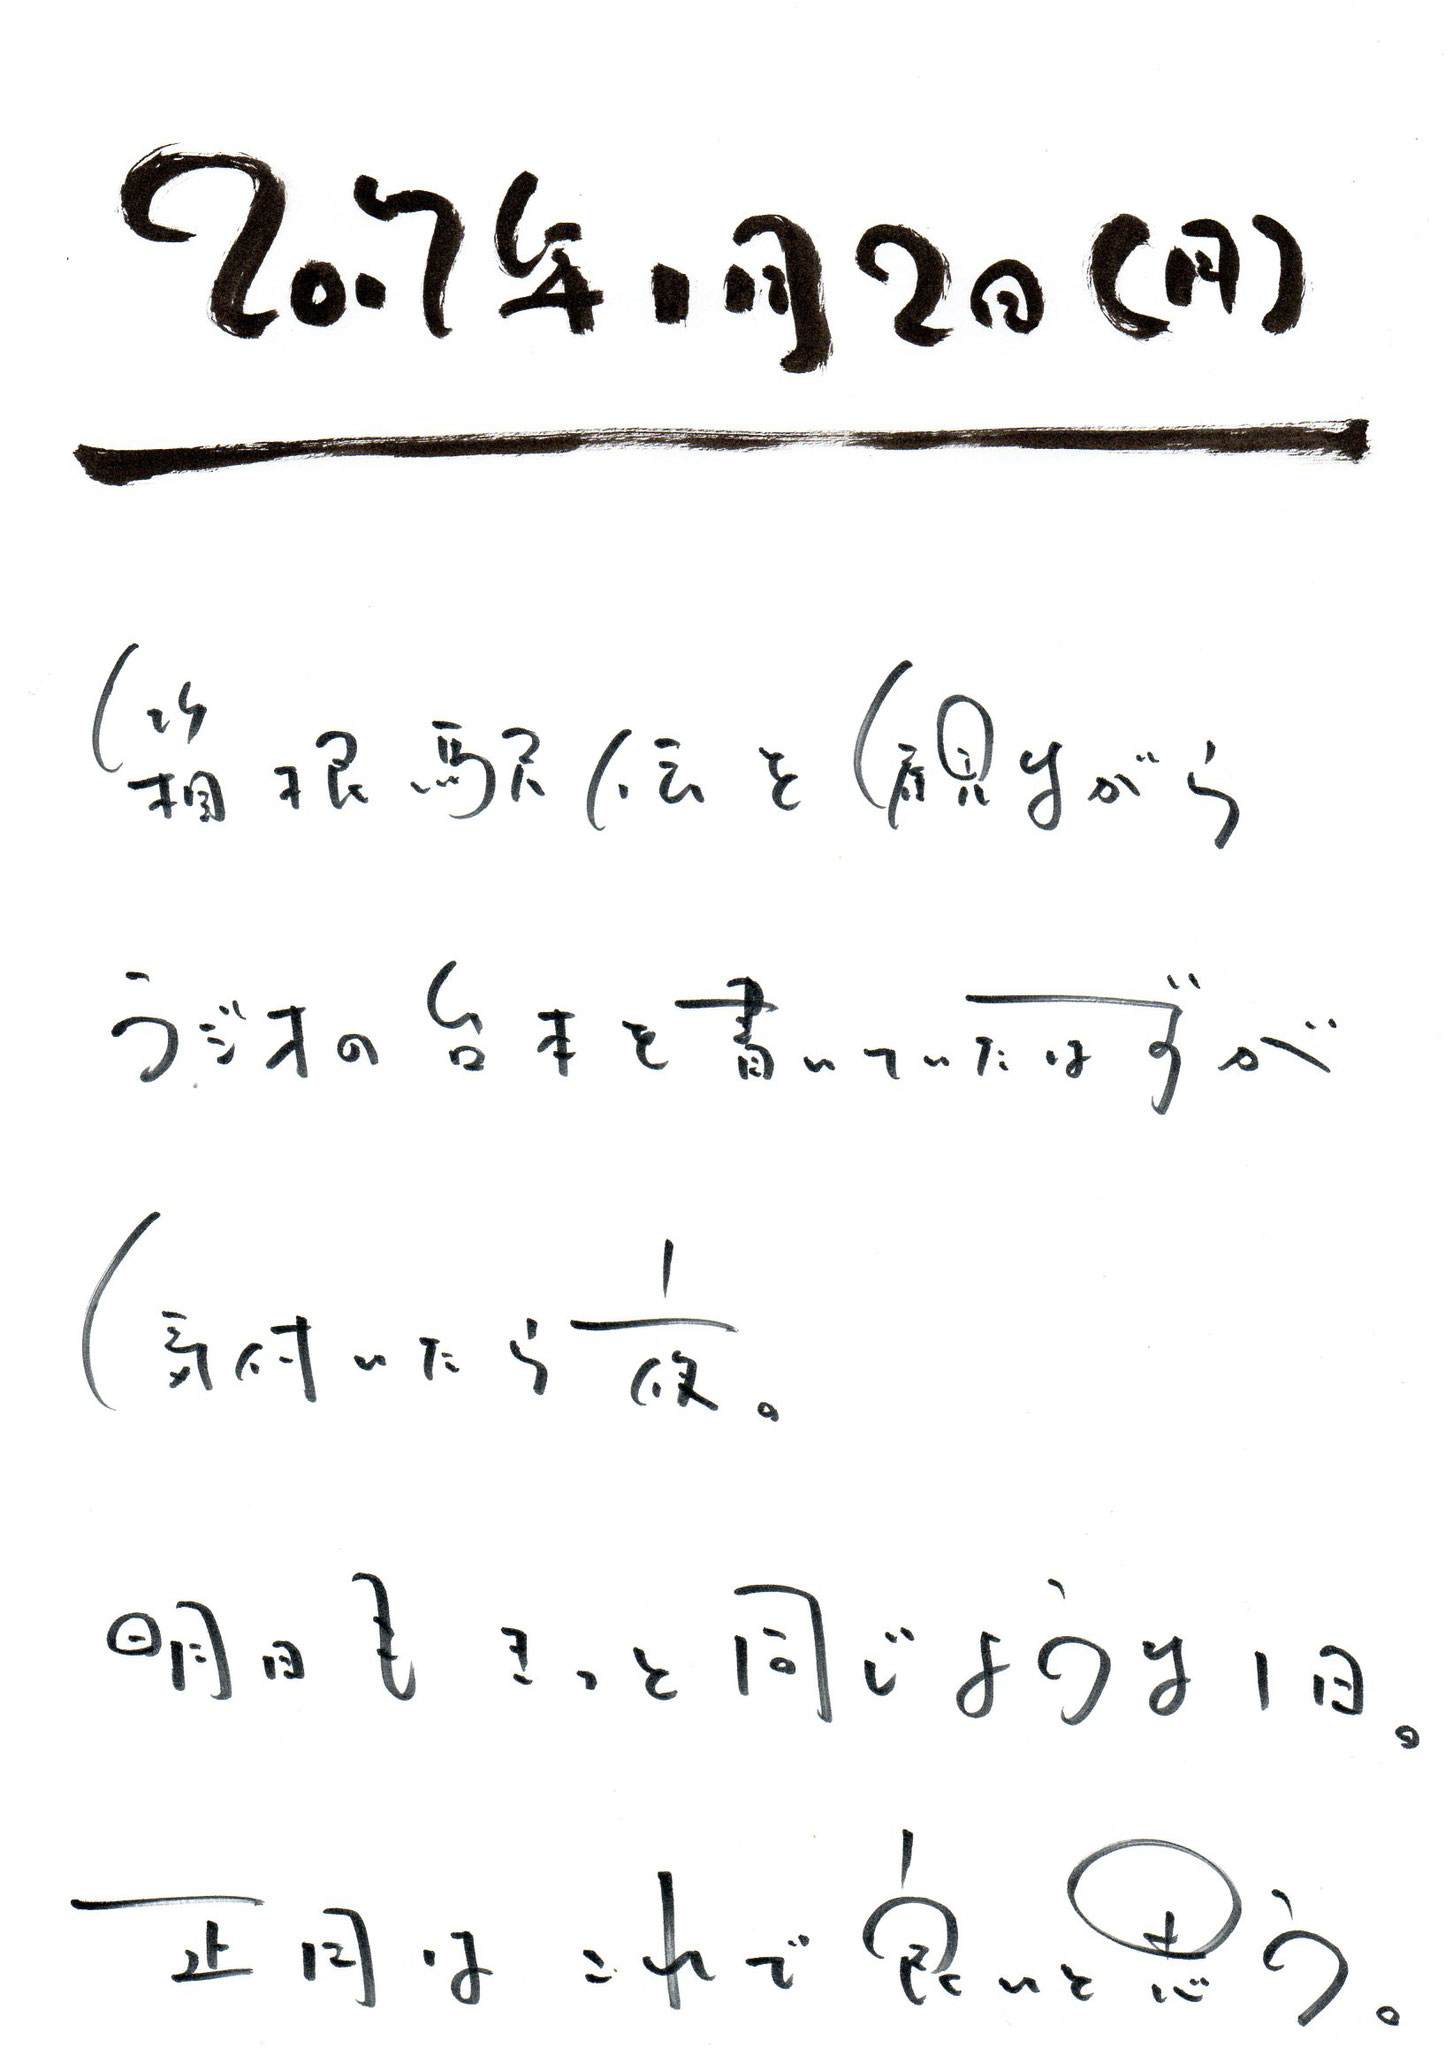 2017年1月2日(月)
箱根駅伝を観ながら
ラジオの台本を書いていたはずが
気付いたら夜。
明日もきっと同じような1日。
正月はこれで良いと思う。